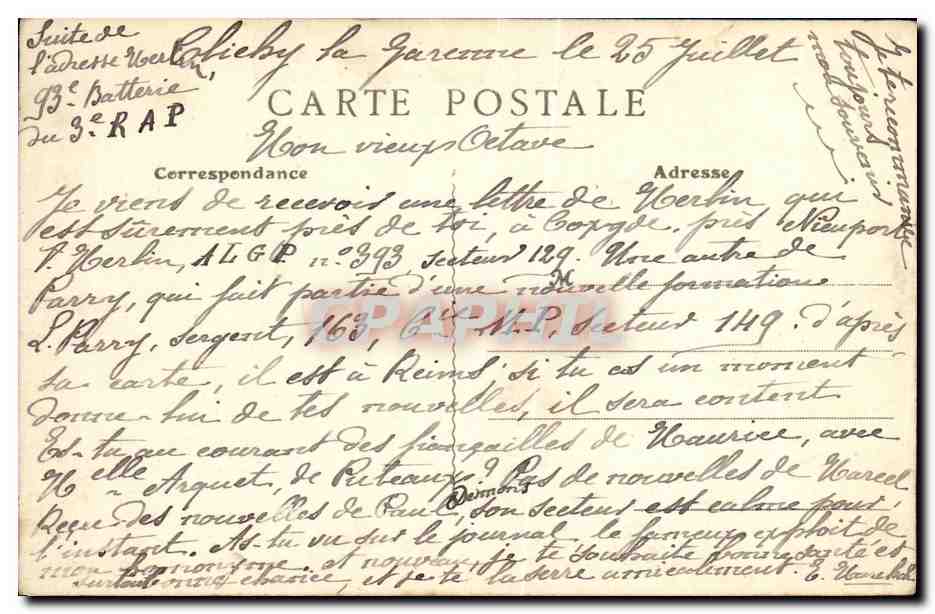 Clichy la Garenne le 25 Juillet
CARTE POSTALE
Mon vieux Octave
Correspondance
Adresse
Je viens de recevois une lettre de Merlin, qui
est sûrement près de toi, à Coxyde, près Nieuport
V. Merlin, A L G P n° 393, secteur 129. Une autre de
M
Parry, qui fait partie d'une nouvelle formation
L. Parry, sergent, 163, 6 bis M.P, secteur 149. d'après
sa carte, il est à Reims; si tu as un moment
donne-lui de tes nouvelles, il sera content
Es-tu au courant des fiançailles de Maurice, avec
Melle Arquet, de Puteaux? Pas de nouvelles de Marcel
Reçu des nouvelles de Paul, son secteur est calme pour
l'instant. As-tu vu sur le journal, le fameux exploit de
mon homonyme. et nouveau, je te souhaite bonne santé et
surtout chance, et je te la serre amicalement. E.
Suite de
l'adresse Merlin
93e Batterie
du 3e R A P
Je te recommande
toujours
mon souvenir
CPAPHIL